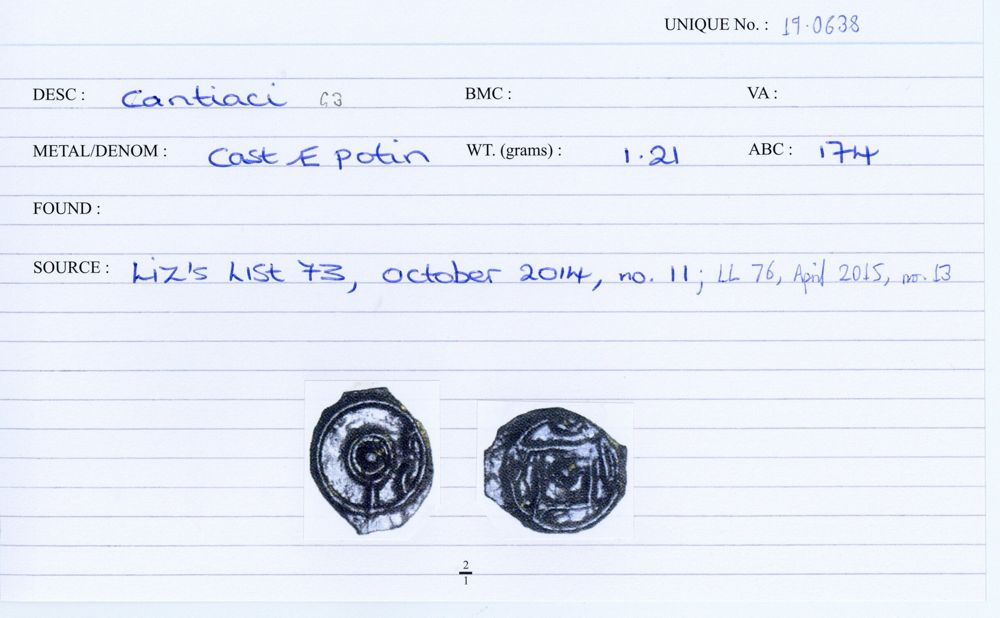 UNIQUE No. : 19.0638
DESC : Cantiaci G3 BMC : VA :
METAL/DENOM : Cast Æ potin WT. (grams) : 1.21 ABC : 174
FOUND :
SOURCE : Liz's List 73, october 2014, no. 11; LL 76, April 2015, no. 13
2
1